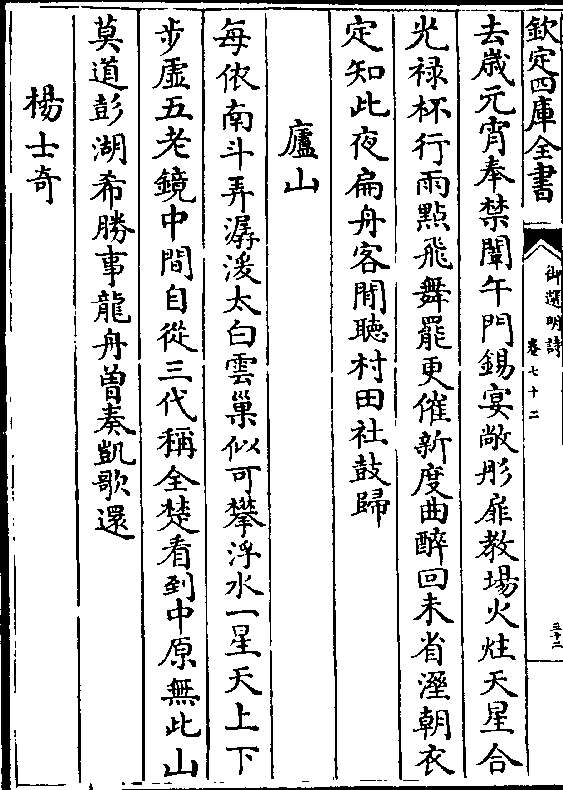 欽定四庫全書
御選明詩
卷七十二
五十二
去歲元宵奉禁闈午門錫宴敞彤扉教場火炷天星合
光祿杯行雨點飛舞罷更催新度曲醉回未省溼朝衣
定知此夜扁舟客閒聽村田社鼓歸
廬山
每依南斗弄潺湲太白雲巢似可攀浮水一星天上下
步虛五老鏡中間自從三代稱全楚看到中原無此山
莫道彭湖希勝事龍舟曾奏凱歌還
楊士奇